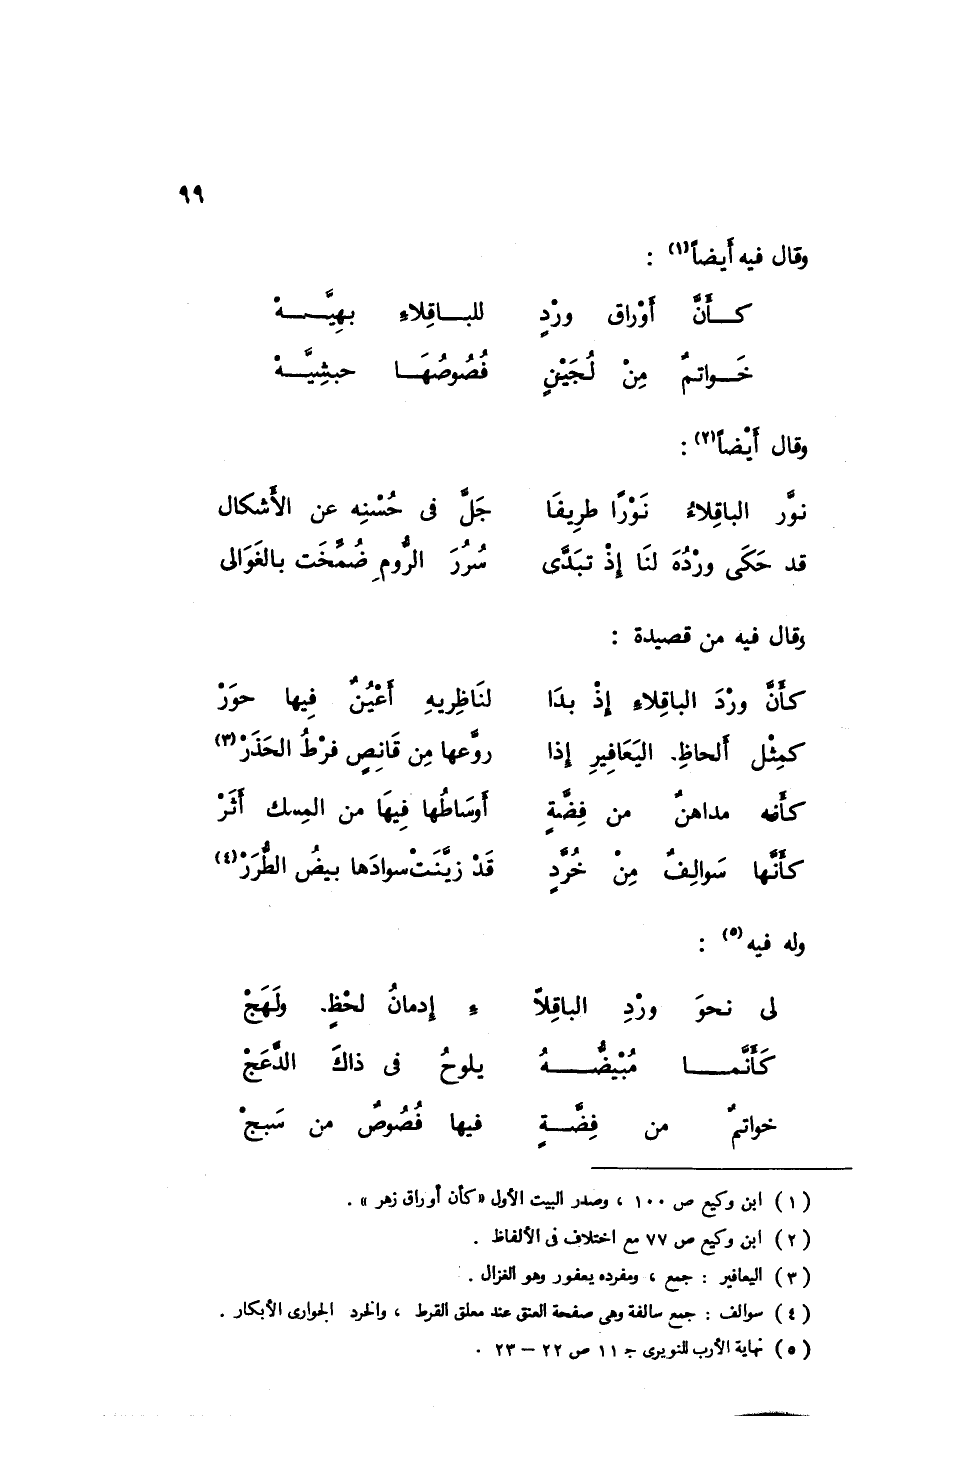 ٩٩
وقال فيه أيضاً(١) :
كــأَنَّ أَوْراق ورْدٍ للبــاقِلاءِ بهِيَّــهْ
خَــواتمٌ مِنْ لُجَيْنٍ فُصُوصُهَــا حبشِيَّــهْ
وقال أَيْضاً(٢) :
نوَّر الباقِلاءُ نَوْرًا طرِيفًا جَلَّ فى حُسْنِه عن الأَشكال
قد حَكَى ورْدُهَ لنَا إِذْ تبَدَّى سُرُرَ الرُّومِ ضُمِّخَت بالغَوَالى
وقال فيه من قصيدة :
كأَنَّ ورْدَ الباقِلاءِ إِذْ بدَا لنَاظِريهِ أَعْيُنٌ فِيها حوَرْ
كمِثْل أَلحاظِ. اليَعَافِيرِ إِذا روَّعها مِن قَانِصٍ فرْطُ الحَذَرْ(٣)
كأَنه مداهنٌ من فِضَّةٍ أَوسَاطُها فِيهَا من المِسك أَثَرْ
كأَنَّها سَوالِفٌ مِنْ خُرَّدٍ قَدْ زيَّنَتْ سوادَها بيضُ الطُّرَرْ(٤)
وله فيه(٥) :
لى نحوَ ورْدِ الباقِلاَّ ءِ إِدمانُ لحْظٍ. ولَهَجْ
كَأَنَّمــا مُبْيضُّــهُ يلوحُ فى ذاكَ الدَّعَجْ
خواتمٌ من فِضَّــةٍ فيها فُصُوصٌ من سَبجْ
(١) ابن وكيع ص ١٠٠ ، وصدر البيت الأول «كأن أوراق زهر» .
(٢) ابن وكيع ص ٧٧ مع اختلاف فى الألفاظ .
(٣) اليعافير : جمع ، ومفرده يعفور وهو الغزال .
(٤) سوالف : جمع سالفة وهى صفحة العنق عند معلق القرط ، والخرد الجوارى الأبكار .
(٥) نهاية الأرب للنويرى ج ١١ ص ٢٢ – ٢٣ .